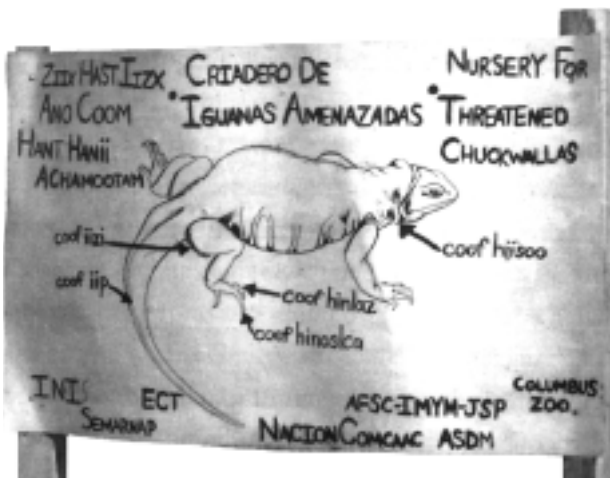 Ziix Hast Iizx
Ano Coom
Hant Hanii
Achamootam
Criadero De
Iguanas Amenazadas
Nursery For
Threatened
Chuckwallas
coof iizi
coof hiisoo
coof iip
coof hinlaz
coof hinoslca
INIS
ECT
AFSC-IMYM-JSP
Columbus
Zoo.
Semarnap
Nacion Comcaac
ASDM